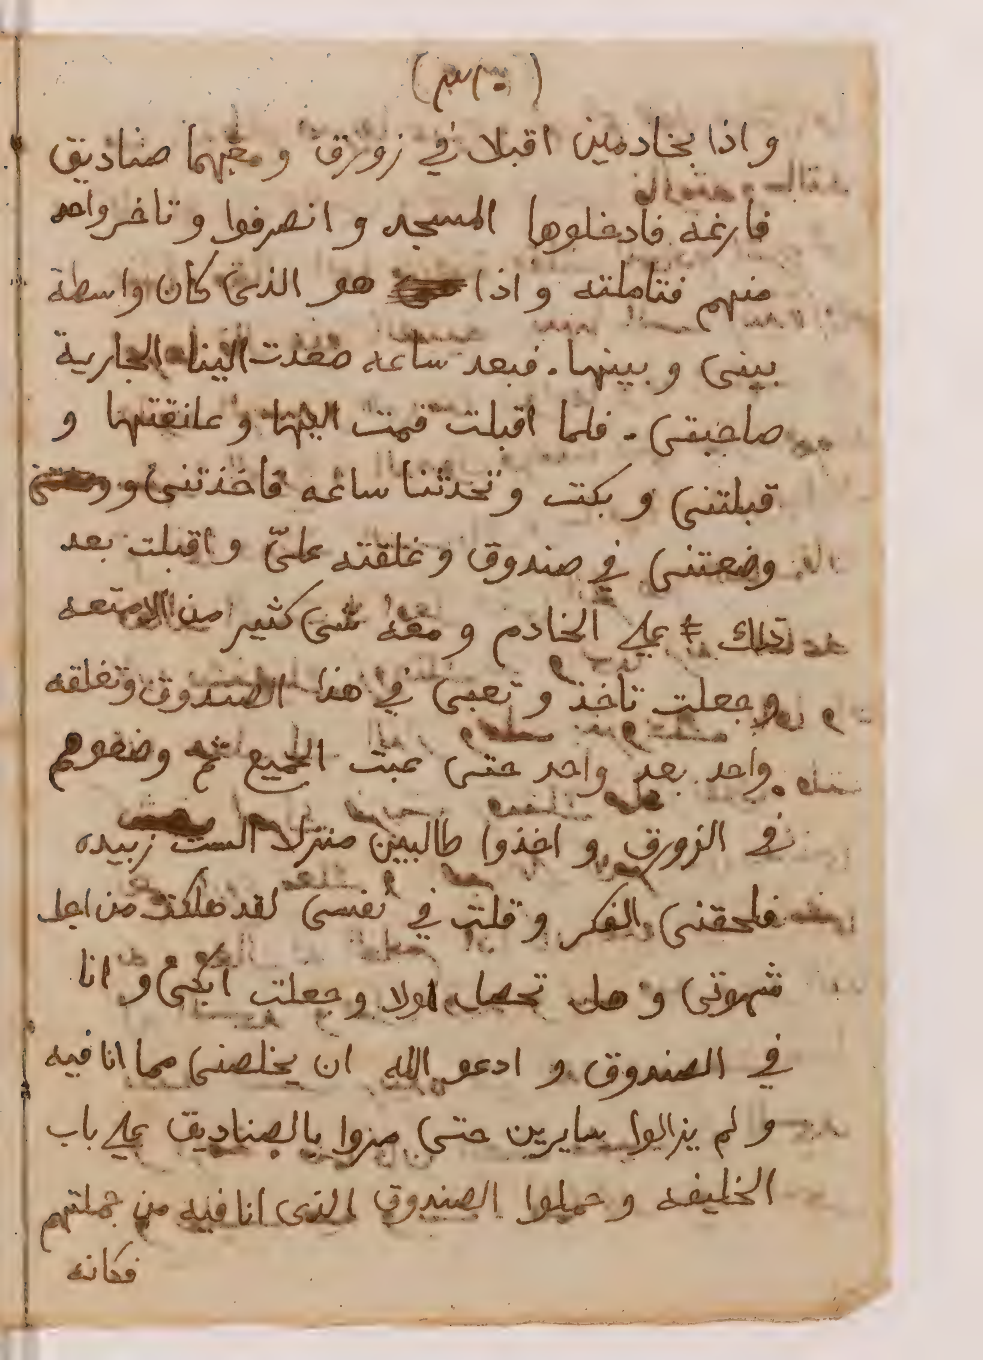 واذا بخادمين اقبلا في زورق ومعهما صناديق
فارغه فادخلوها المسجد و انصرفوا و تاخر واحد
منهم فتاملته و اذا هو الذى كان واسطة
بينى و بينها . فبعد ساعه صعدت الينا الجارية
صاحبتى . فلما اقبلت قمت اليها و عانقتها و
قبلتنى و بكت و تحدثنا ساعه فاخذتنى و
وضعتنى في صندوق و غلقته علىّ و اقبلت بعد
ذلك على الخادم و معه شى كثير من الامتعه
وجعلت تاخذ و تعبى في هذا الصندوق وتغلقه
واحد بعد واحد حتى عبت الجميع ثم وضعوهم
في الزورق و اخذوا طالبين منزل الست زبيده
فلحقنى الفكر و قلت في نفسى لقد هلكت من اجل
شهوتى و هل تحصل لو لا و جعلت ابكى و انا
في الصندوق و ادعو الله ان يخلصنى مما انا فيه
و لم يزالوا سايرين حتى مروا بالصناديق على باب
الخليفه و حملوا الصندوق الذى انا فيه من جملتهم
فكانه